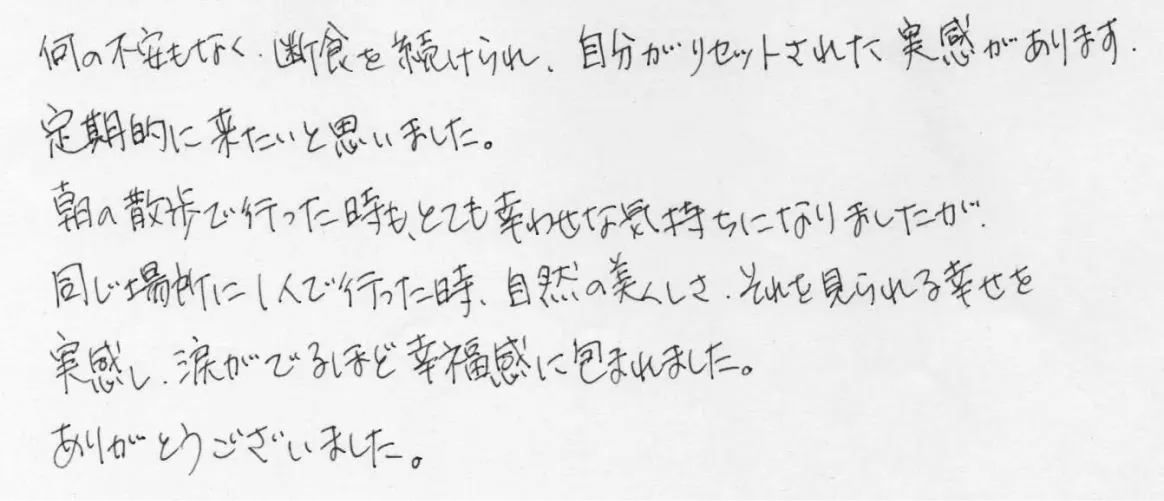 何の不安もなく、断食を続けられ、自分がリセットされた実感があります。
定期的に来たいと思いました。
朝の散歩で行った時も、とても幸わせな気持ちになりましたが、
同じ場所に1人で行った時、自然の美くしさ、それを見られる幸せを
実感し、涙がでるほど幸福感に包まれました。
ありがとうございました。